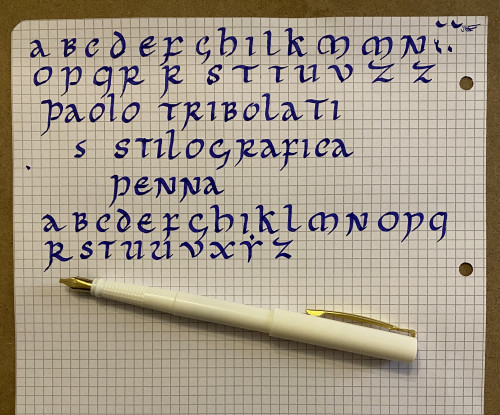 a b c d e f g h i l k m m n
o p q r r s t t u v z z
paolo tribolati
s stilografica
penna
a b c d e f g h i k l m n o p q
r s t u u v x y z